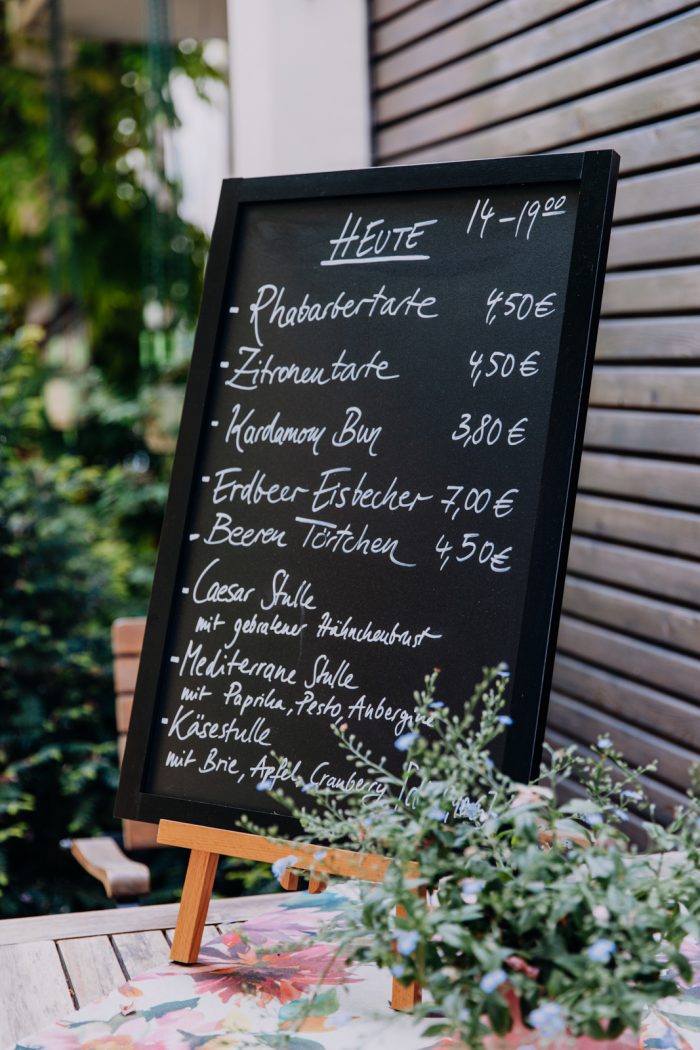 HEUTE 14-19⁰⁰
- Rhabarbertarte 4,50€
- Zitronentarte 4,50€
- Kardamom Bun 3,80€
- Erdbeer Eisbecher 7,00€
- Beeren Törtchen 4,50€
- Caesar Stulle
mit gebratener Hähnchenbrust
- Mediterrane Stulle
mit Paprika, Pesto, Aubergine
- Käsestulle
mit Brie, Apfel, Cranberry